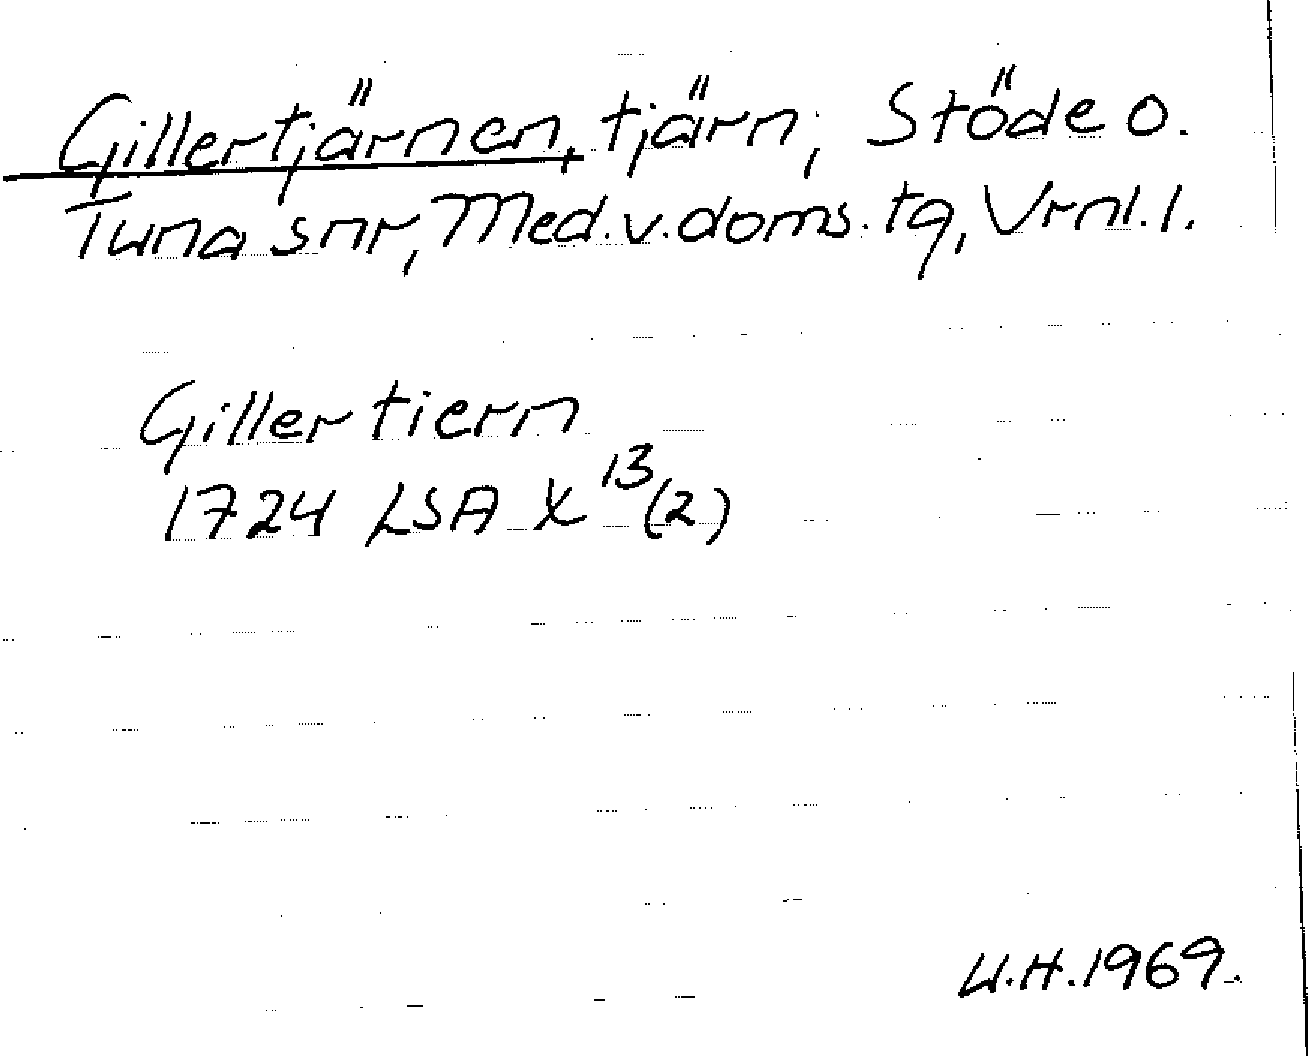 Gillertjärnen, tjärn, Stöde o.
Tuna snr, Med.v.doms.tg, Vrnl.l.
Gillertiern
1724 LSA X 13 (2)
U.H.1969.